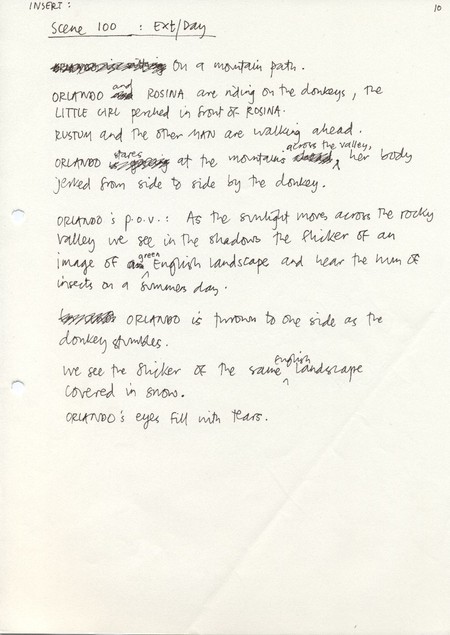 INSERT:
10
Scene 100 : Ext/Day
On a mountain path.
ORLANDO and ROSINA are riding on the donkeys, the
LITTLE GIRL perched in front of ROSINA.
RUSTUM and the other MAN are walking ahead.
ORLANDO stares at the mountains across the valley, her body
jerked from side to side by the donkey.
ORLANDO's p.o.v.: As the sunlight moves across the rocky
valley we see in the shadows the flicker of an
image of green English landscape and hear the hum of
insects on a summers day.
ORLANDO is thrown to one side as the
donkey stumbles.
We see the flicker of the same English landscape
covered in snow.
ORLANDO's eyes fill with tears.